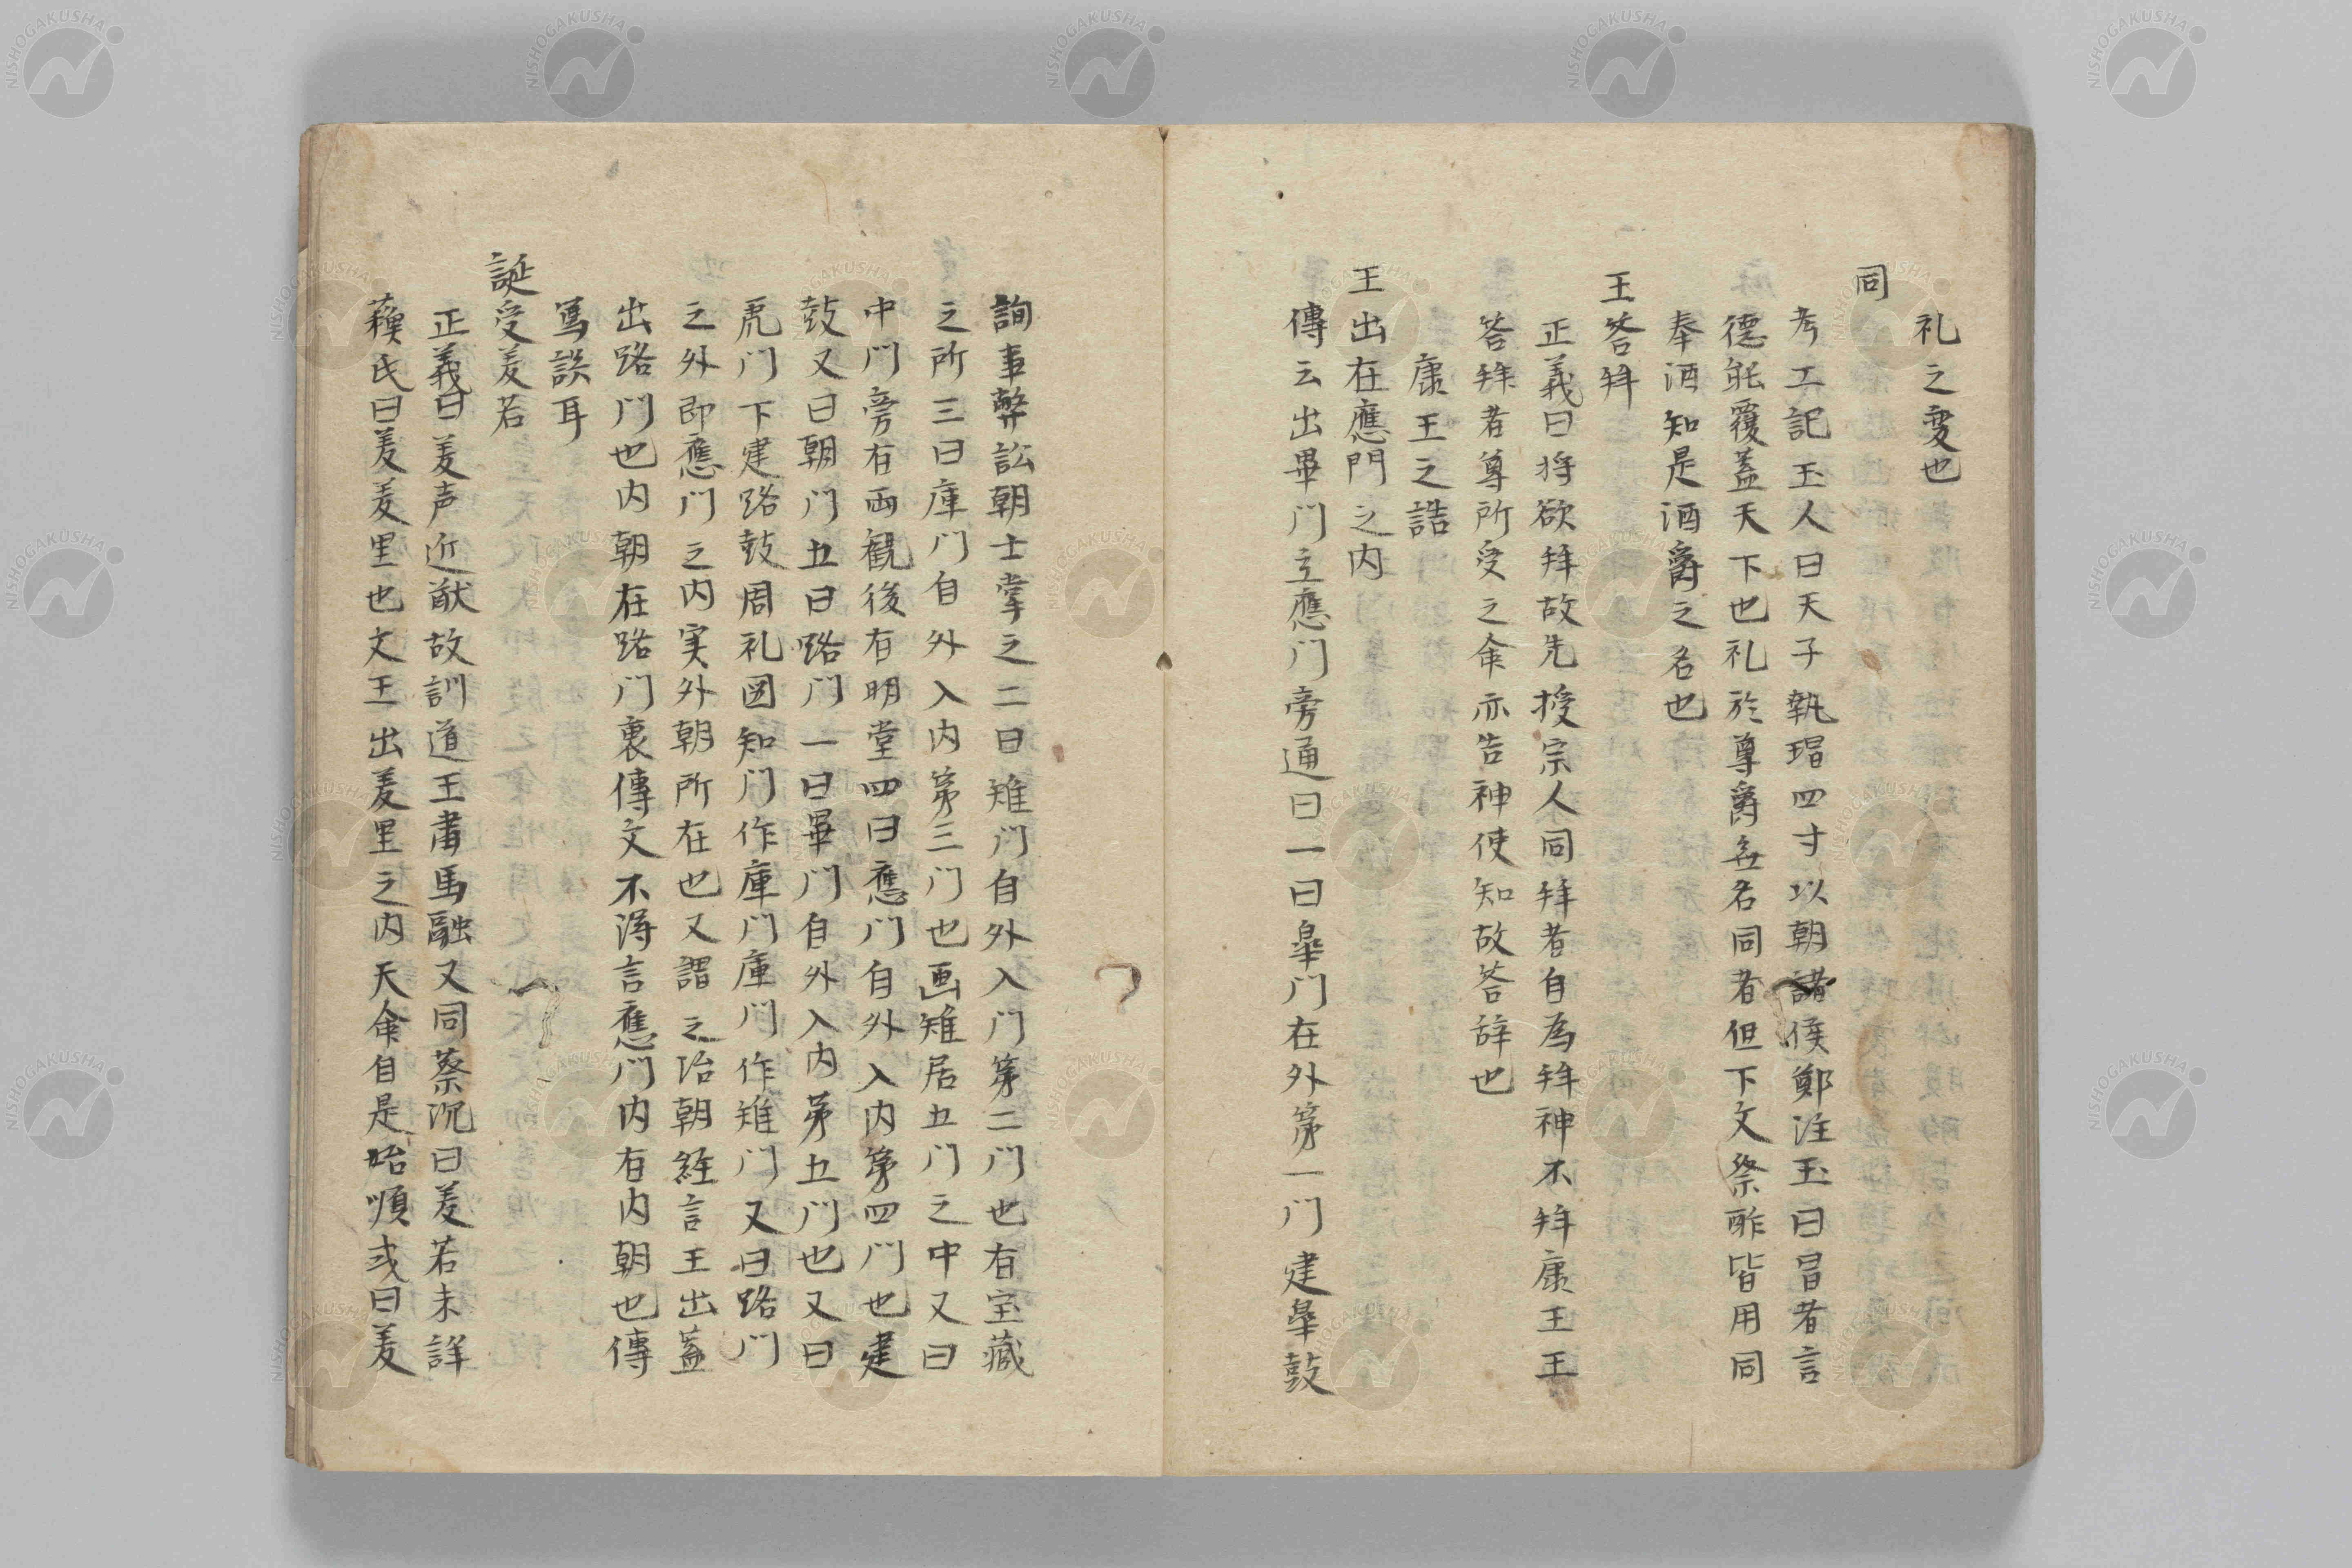 礼之変也
同
考工記玉人曰天子執瑁四寸以朝諸侯鄭注玉曰冒者言
徳能覆蓋天下也礼於尊爵無名同者但下文祭酢皆用同
奉酒知是酒爵之名也
王答拜
正義曰将欲拜故先授宗人同拜者自為拜神不拜康王王
答拜者尊所受之命亦告神使知故答辞也
康王之誥
王出在應門之内
傳云出畢門立應門旁通曰一曰皐門在外第一門建皐鼓
詢事弊訟朝士掌之二曰雉門自外入門第二門也有宝藏
之所三曰庫門自外入内第三門也画雉居五門之中又曰
中門旁有両観後有明堂四曰應門自外入内第四門也建
鼓又曰朝門五曰路門一曰畢門自外入内第五門也又曰
虎門下建路鼓周礼図知門作庫門庫門作雉門又曰路門
之外即應門之内実外朝所在也又謂之治朝経言王出蓋
出路門也内朝在路門裏傳文不得言應門内有内朝也傳
写誤耳
誕受羑若
正義曰羑声近猷故訓道王肅馬融又同蔡沉曰羑若未詳
蘓氏曰羑羑里也文王出羑里之内天命自是始順或曰羑
NISHOGAKUSHA